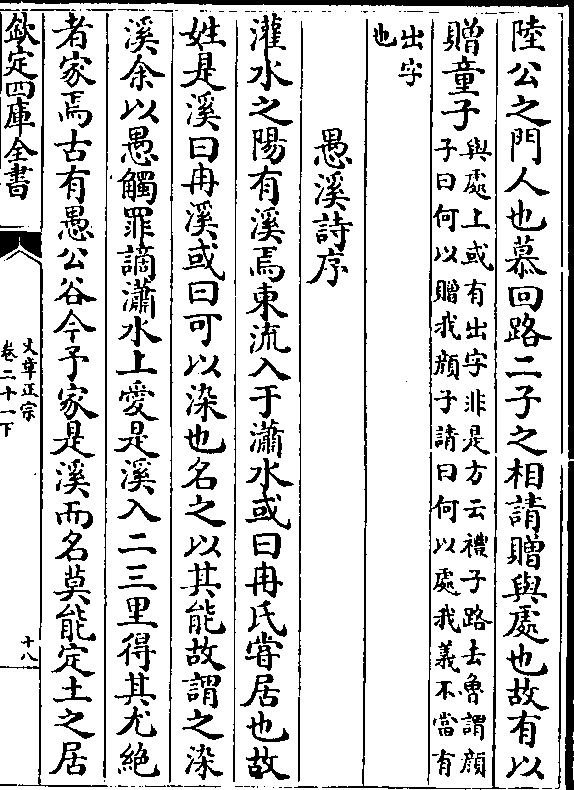 陸公之門人也慕回路二子之相請贈與處也故有以
贈童子與處上或有出字非是方云禮子路去魯謂顔
子曰何以贈我顔子請曰何以處我義不當有
出字
也
愚溪詩序
灌水之陽有溪焉東流入于瀟水或曰冉氏甞居也故
姓是溪曰冉溪或曰可以染也名之以其能故謂之染
溪余以愚觸罪謫瀟水上愛是溪入二三里得其尤絶
者家焉古有愚公谷今予家是溪而名莫能定土之居
欽定四庫全書
文章正宗
卷二十一下
十八